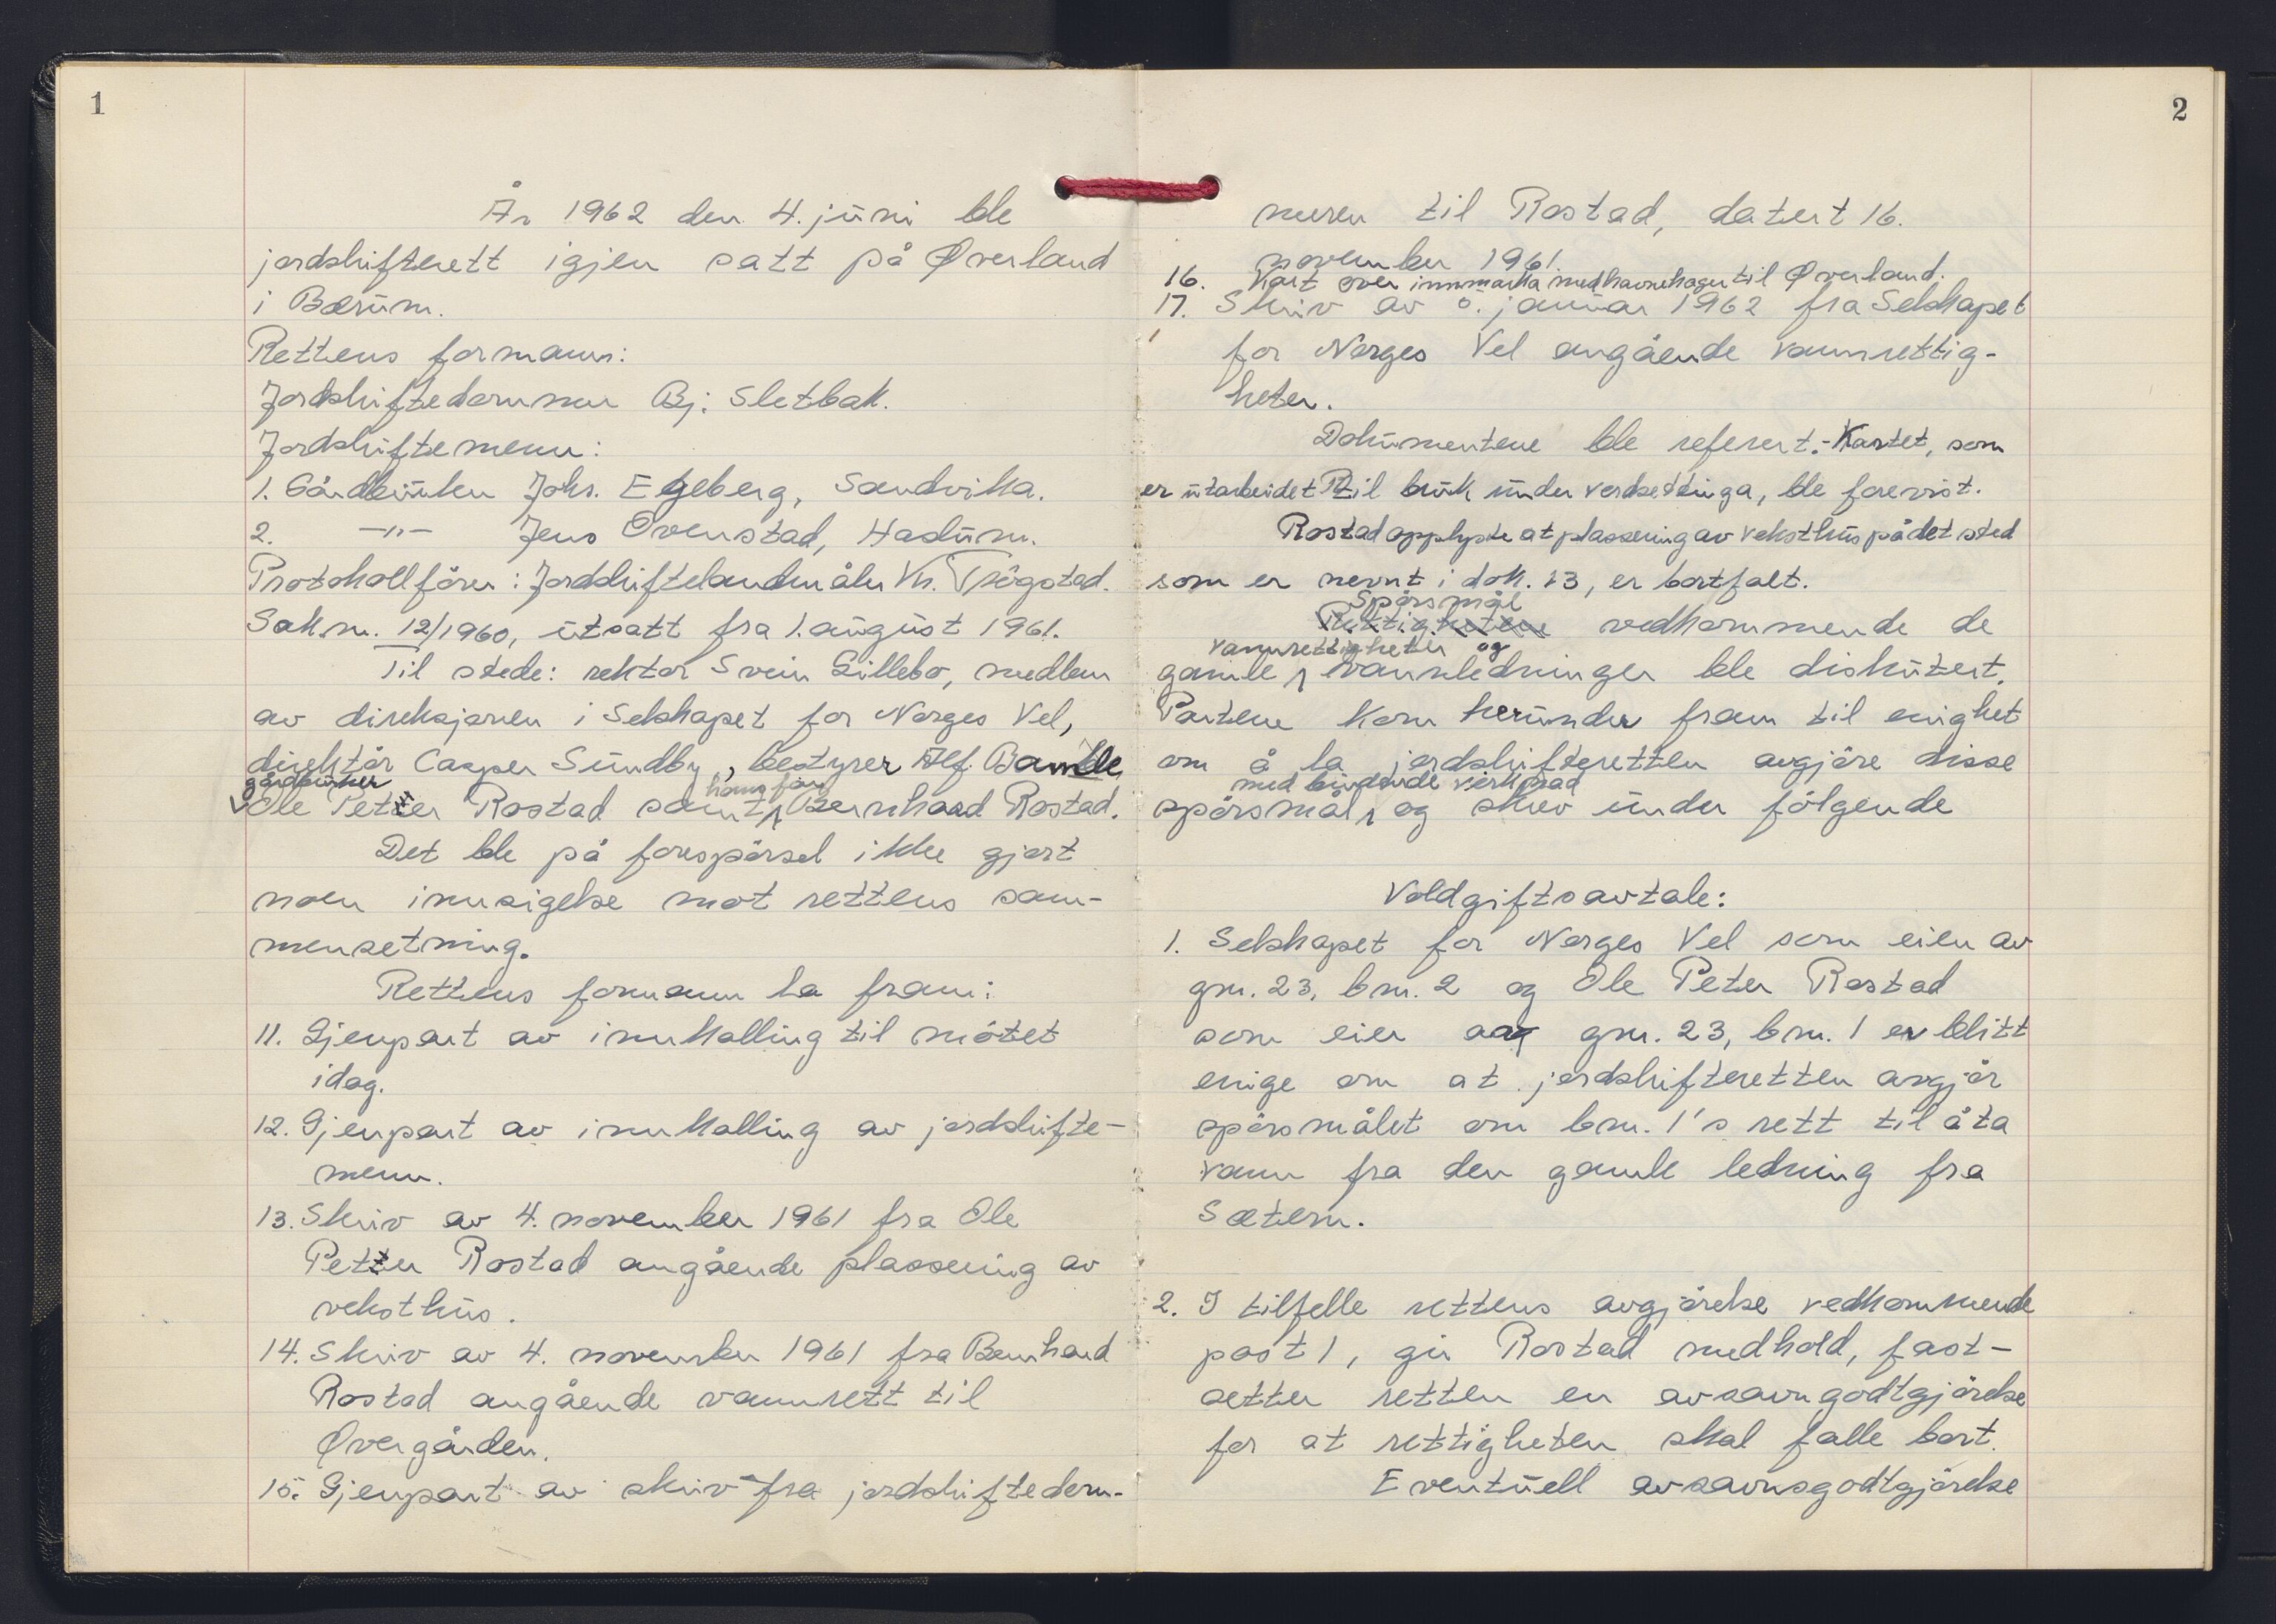 1
År 1962 den 4. juni ble
jordskifterett igjen satt på Øverland
i Bærum.
Rettens formann:
Jordskiftedommer Bj. Sletbak.
Jordskiftemenn:
1. Gårdbruker Johs. Egeberg, Sandvika.
2. —"— Jens Ovenstad, Haslum.
Protokollfører: Jordskiftelandmåler Kr. Trøgstad.
Sak nr. 12/1960, utsatt fra 1. august 1961.
Til stede: rektor Svein Gillebo, medlem
av direksjonen i Selskapet for Norges Vel,
direktør Casper Sundby, bestyrer Alf Bamble,
gårdbruker
Ole Petter Rostad samt hans far Bernhard Rostad.
Det ble på forespørsel ikke gjort
noen innsigelse mot rettens sam-
mensetning.
Rettens formann la fram:
11. Gjenpart av innkalling til møtet
idag.
12. Gjenpart av innkalling av jordskifte-
menn.
13. Skriv av 4. november 1961 fra Ole
Petter Rostad angående plassering av
veksthus.
14. Skriv av 4. november 1961 fra Bernhard
Rostad angående vannrett til
Øvergården.
15. Gjenpart av skriv fra jordskiftedom-
2
meren til Rostad, datert 16.
november 1961.
16. Kart over innmarka med havnehager til Øverland.
17. Skriv av 8. januar 1962 fra Selskapet
for Norges Vel angående vannrettig-
heter.
Dokumentene ble referert.- Kartet, som
er utarbeidet til bruk under verdsettinga, ble forevist.
Rostad opplyste at plassering av veksthus på det sted
som er nevnt i dok. 13, er bortfalt.
Spørsmål
Rettighetene vedkommende de
vannrettigheter og
gamle vannledninger ble diskutert.
Partene kom herunder fram til enighet
om å la jordskifteretten avgjøre disse
med bindende virkning
spørsmål, og skrev under følgende
Voldgiftsavtale:
1. Selskapet for Norges Vel som eier av
gnr. 23, bnr. 2 og Ole Peter Rostad
som eier av gnr. 23, bnr. 1 er blitt
enige om at jordskifteretten avgjør
spørsmålet om bnr. 1's rett til å ta
vann fra den gamle ledning fra
Sætern.
2. I tilfelle rettens avgjørelse vedkommende
post 1, gir Rostad medhold, fast-
setter retten en avsavngodtgjørelse
for at rettigheten skal falle bort.
Eventuell avsavnsgodtgjørelse